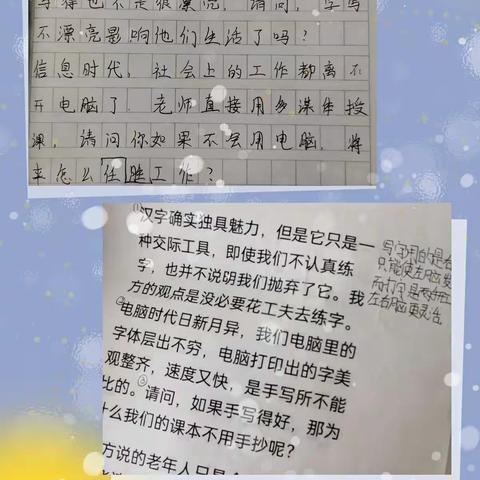 写得也不是很漂亮，请问，字写
不漂亮影响他们生活了吗？
信息时代，社会上的工作都离不
开电脑了，老师直接用多媒体授
课，请问你如果不会用电脑，将
来怎么任胜工作？
①汉字确实独具魅力，但是它只是一
种交际工具，即使我们不认真练
字，也并不说明我们抛弃了它。我
方的观点是没必要花工夫去练字。
②电脑时代日新月异，我们电脑里的
字体层出不穷，电脑打印出的字美
观整齐，速度又快，是手写所不能
比的。③请问，如果手写得好，那为
什么我们的课本不用手抄呢？
方说的老年人只是
写字用的是右
只能使左脑更
而打字是两手
左右脑更灵活